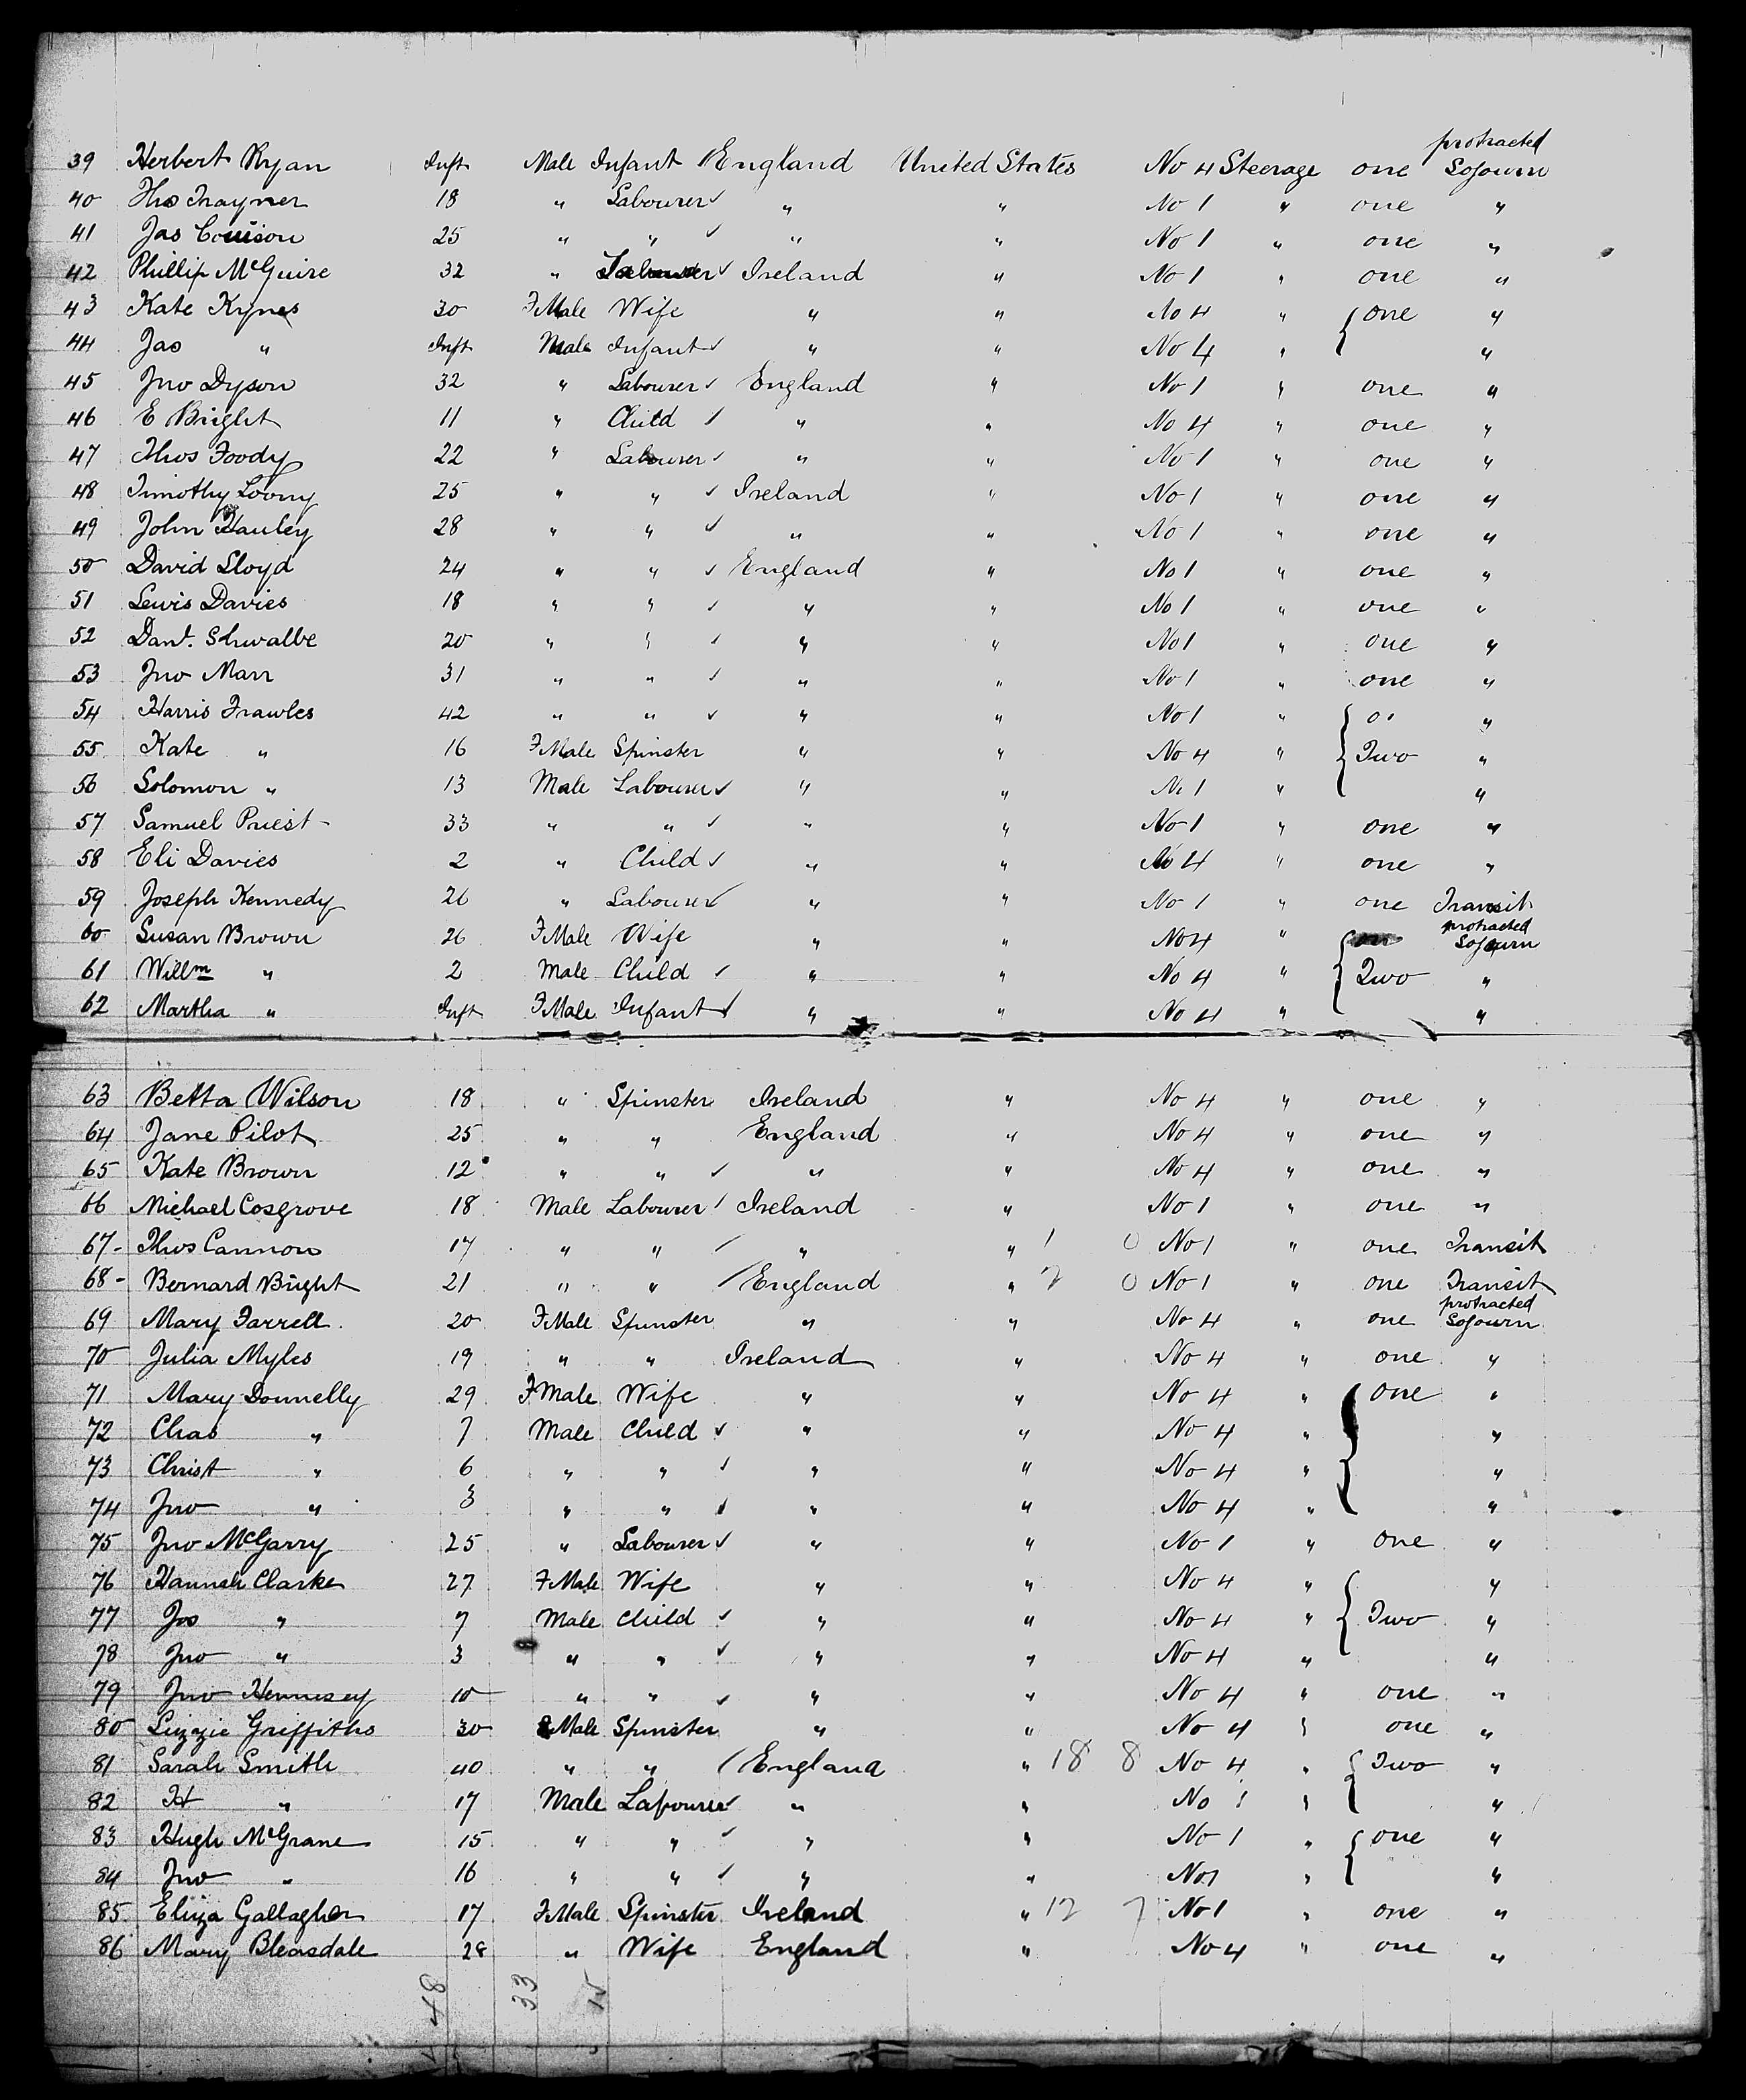 39 Herbert Ryan Inft Male Infant England United States No 4 Steerage one protracted Sojourn
40 Ths Trayner 18 " Labourer " " No 1 " one "
41 Jas 25 " " " " No 1 " one "
42 Phillip McGuire 32 " Labourer Ireland " No 1 " one "
43 Kate Kynes 30 FMale Wife " " No 4 " one "
44 Jas " Inft Male Infant " " No 4 " "
45 Jno Dyson 32 " Labourer England " No 1 " one "
46 E Bright 11 " Child " " No 4 " one "
47 Thos Foody 22 " Labourer " " No 1 " one "
48 Timothy Loony 25 " " Ireland " No 1 " one "
49 John Hauley 28 " " " " No 1 " one "
50 David Lloyd 24 " " England " No 1 " one "
51 Lewis Davies 18 " " " " No 1 " one "
52 Danl. Shwalbe 20 " " " " No 1 " one "
53 Jno Marr 31 " " " " No 1 " one "
54 Harris Frawles 42 " " " " No 1 " "
55 Kate " 16 FMale Spinster " " No 4 " Two "
56 Solomon " 13 Male Labourer " " No 1 " "
57 Samuel Priest 33 " " " " No 1 " one "
58 Eli Davies 2 " Child " " No 4 " one "
59 Joseph Kennedy 26 " Labourer " " No 1 " one Transit
60 Susan Brown 26 FMale Wife " " No 4 " protracted Sojourn
61 Willm " 2 Male Child " " No 4 " Two "
62 Martha " Inft FMale Infant " " No 4 " "
63 Betta Wilson 18 " Spinster Ireland " No 4 " one "
64 Jane Pilot 25 " " England " No 4 " one "
65 Kate Brown 12 " " " " No 4 " one "
66 Michael Cosgrove 18 Male Labourer Ireland " No 1 " one "
67 - Thos Cannon 17 " " " " 1 0 No 1 " one Transit
68 - Bernard Bright 21 " " England " 2 0 No 1 " one Transit
69 Mary Farrell 20 FMale Spinster " " No 4 " one protracted Sojourn
70 Julia Myles 19 " " Ireland " No 4 " one "
71 Mary Donnelly 29 FMale Wife " " No 4 " one "
72 Chas " 7 Male Child " " No 4 " "
73 Christ " 6 " " " " No 4 " "
74 Jno " 3 " " " " No 4 " "
75 Jno McGarry 25 " Labourer " " No 1 " one "
76 Hannah Clarke 27 FMale Wife " " No 4 " "
77 Jos " 7 Male Child " " No 4 " Two "
78 Jno " 3 " " " " No 4 " "
79 Jno Hennesey 10 " " " " No 4 " one "
80 Lizzie Griffiths 30 FMale Spinster " " No 4 " one "
81 Sarah Smith 40 " " England " 18 8 No 4 " Two "
82 H " 17 Male Labourer " " No 1 " "
83 Hugh McGrane 15 " " " " No 1 " one "
84 Jno " 16 " " " " No 1 " "
85 Eliza Gallagher 17 FMale Spinster Ireland " 12 7 No 1 " one "
86 Mary Bleasdale 28 " Wife England " No 4 " one "
48 33 15